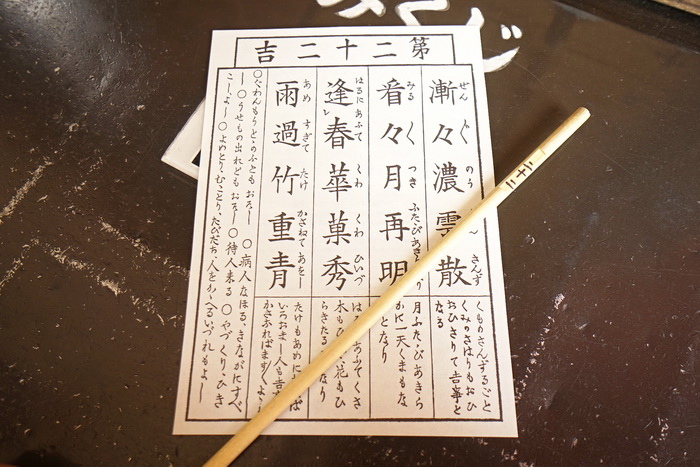 第二十二吉
漸々濃雲散
ぜん〴〵のう さんず
看々月再明
みる〳〵つきふたゝびあきらか
逢春華菓秀
はるにあふてくわくわひいづ
雨過竹重青
あめすぎてたけかさねてあをし
くものさんずるごと
くみのさはりもおひ
おひさりて吉事と
なる
月ふたゝびあきら
かに一天くまもな
となり
あふてくさ
木もひ 花もひ
らきたる なり
たけもあめに ば
いろおまし人も吉
かさぬればます〳〵よ
○ぐわんもうとゝのふともおそし ○病人なほる、きながにすべ
し ○うせもの出れどもおそし ○待人来る ○やづくりひき
こしよし ○よめとり、むことり、たびだち、人をかゝへるいづれもよし
二十二